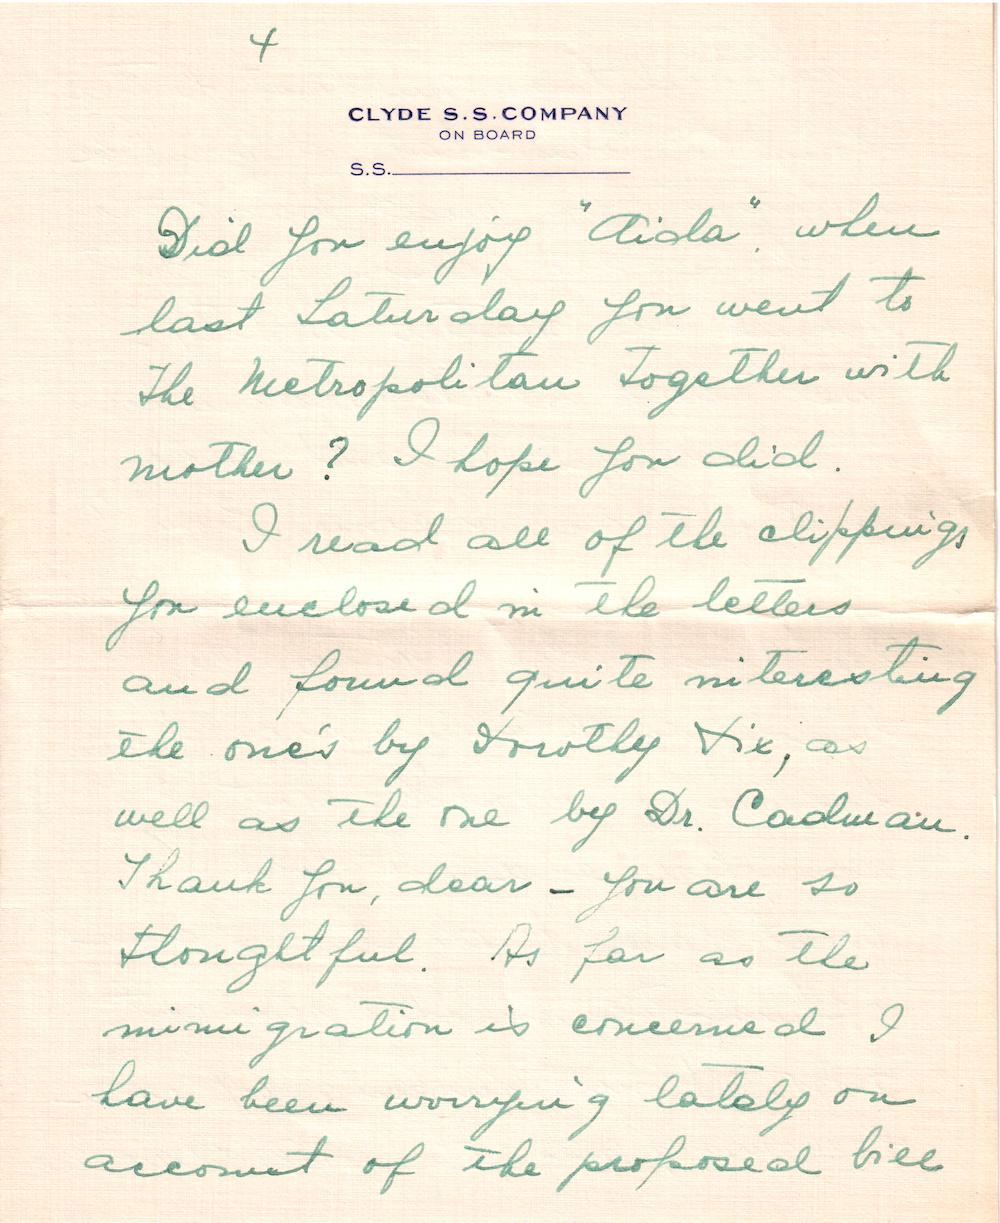 4
CLYDE S.S. COMPANY
ON BOARD
S.S.
Did you enjoy "Aida". when
last Saturday you went to
the Metropolitan together with
mother? I hope you did.
I read all of the clippings
you enclosed in the letters
and found quite interesting
the one's by Dorothy Dix, as
well as the one by Dr. Cadman.
Thank you, dear – you are so
thoughtful. As far as the
immigration is concerned I
have been worrying lately on
account of the proposed bill